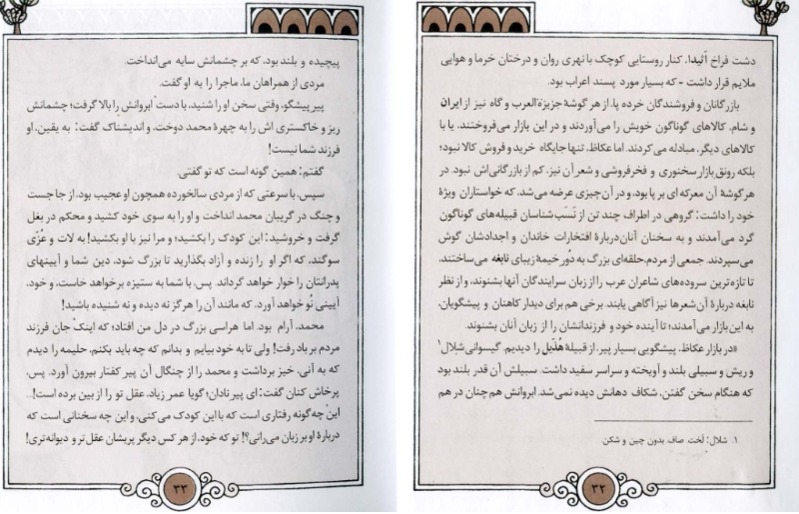 دشت فراخ اَثیدا، کنار روستایی کوچک با نهری روان و درختان خرما و هوایی
ملایم قرار داشت - که بسیار مورد پسند اعراب بود.
بازرگانان و فروشندگان خرده پا، از هر گوشهٔ جزیرةالعرب و گاه نیز از ایران
و شام، کالاهای گوناگون خویش را می‌آوردند و در این بازار می‌فروختند، یا با
کالاهای دیگر، مبادله می‌کردند. اما عکاظ، تنها جایگاه خرید و فروش کالا نبود؛
بلکه رونق بازار سخنوری و فخرفروشی و شعر آن نیز، کم از بازرگانی‌اش نبود. در
هر گوشهٔ آن معرکه ای بر پا بود، و در آن چیزی عرضه می‌شد، که خواستاران ویژهٔ
خود را داشت: گروهی در اطراف چند تن از نَسَب‌شناسان قبیله‌های گوناگون
گرد می‌آمدند و به سخنان آنان دربارهٔ افتخارات خاندان و اجدادشان گوش
می‌سپردند. جمعی از مردم، حلقه‌ای بزرگ به دُور خیمهٔ زیبای نابغه می‌ساختند،
تا تازه‌ترین سروده‌های شاعران عرب را از زبان سرایندگان آنها بشنوند، و از نظر
نابغه دربارهٔ آن شعرها نیز آگاهی یابند. برخی هم برای دیدار کاهنان و پیشگویان،
به این بازار می‌آمدند؛ تا آینده خود و فرزندانشان را از زبان آنان بشنوند.
«در بازار عکاظ، پیشگویی بسیار پیر، از قبیلهٔ هُذَیل را دیدیم. گیسوانی شِلال۱
و ریش و سبیلی بلند و آویخته و سراسر سفید داشت. سبیلش آن قدر بلند بود
که هنگام سخن گفتن، شکاف دهانش دیده نمی‌شد. ابروانش هم چنان در هم
۱. شلال: لَخت، صاف، بدون چین و شکن
۳۲
پیچیده و بلند بود، که بر چشمانش سایه می‌انداخت.
مردی از همراهان ما، ماجرا را به او گفت.
پیر پیشگو، وقتی سخن او را شنید، با دست ابروانش را بالا گرفت؛ چشمانش
ریز و خاکستری اش را به چهرهٔ محمد دوخت، و اندیشناک گفت: به یقین، او
فرزند شما نیست!
گفتم: همین گونه است که تو گفتی.
سپس، با سرعتی که از مردی سالخورده همچون او عجیب بود، از جا جست
و چنگ در گریبان محمد انداخت و او را به سوی خود کشید و محکم در بغل
گرفت و خروشید: این کودک را بکشید؛ و مرا نیز با او بکشید! به لات و عُزّی
سوگند، که اگر او را زنده و آزاد بگذارید تا بزرگ شود، دین شما و آیینهای
پدرانتان را خوار خواهد گرداند. پس، با شما به ستیزه برخواهد خاست، و خود،
آیینی نُو خواهد آورد، که مانند آن را هرگز نه دیده و نه شنیده باشید!
محمد، آرام بود. اما هراسی بزرگ در دل من افتاد؛ که اینکْ جان فرزند
مردم بر باد رفت! ولی تا به خود بیایم و بدانم که چه باید بکنم، حلیمه را دیدم
که به آنی، خیز برداشت و محمد را از چنگال آن پیر کفتار بیرون آورد. پس،
پرخاش کنان گفت: ای پیر نادان؛ گویا عمر زیاد، عقل تو را از بین برده است!...
این چه‌گونه رفتاری است که با این کودک می‌کنی، و این چه سخنانی است که
دربارهٔ او بر زبان می‌رانی؟! تو که خود، از هر کس دیگر پریشان عقل‌تر و دیوانه‌تری!
۳۳